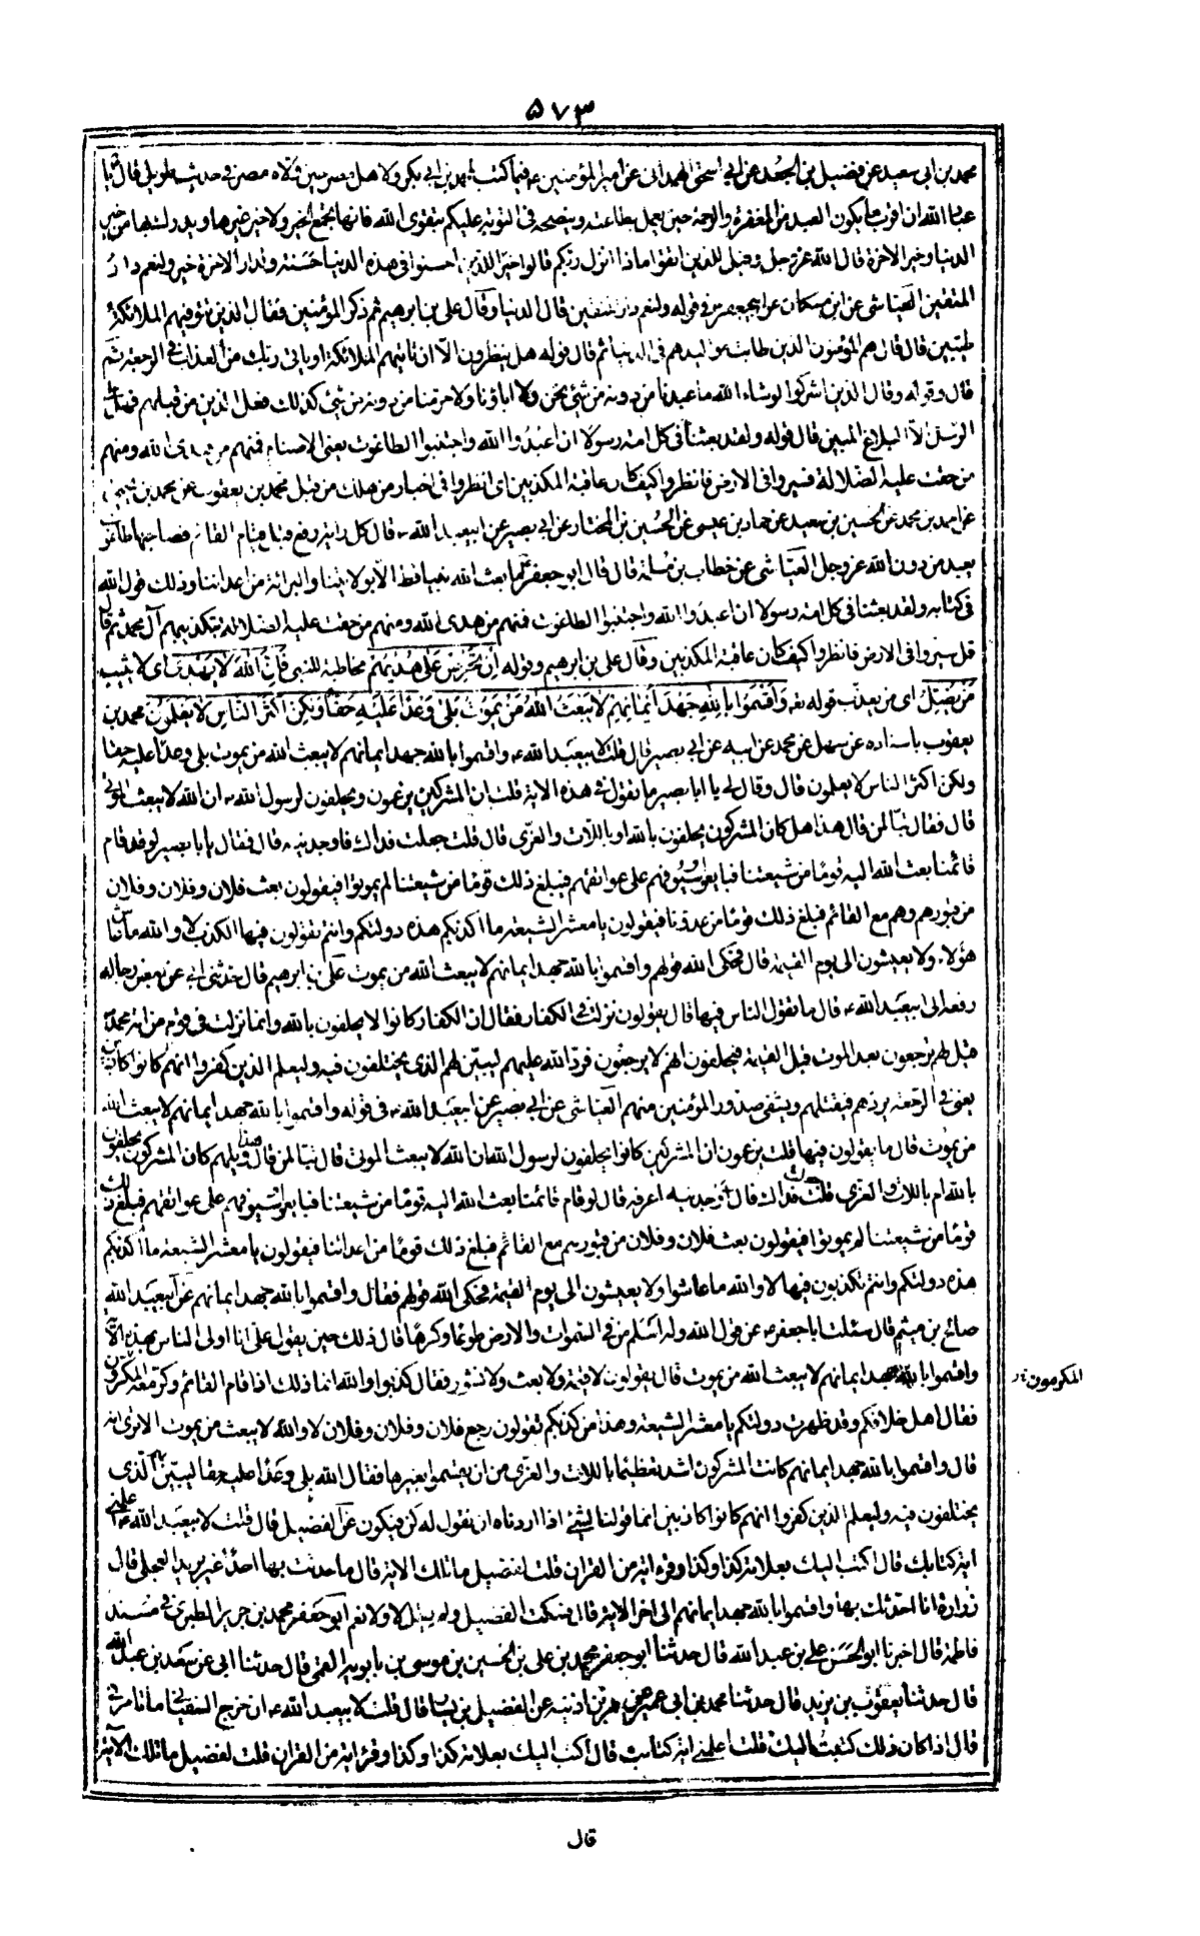 ٥٧٣
محمد بن ابى سعيد عن فضيل بن الجعد عن ابي اسحق الهمدانى عن امير المؤمنين ع فيما كتب لمحمد بن ابي بكر ولاهل مصر حين ولاه مصر في حديث طويل قال يا
عباد الله ان اقرب ما يكون العبد من المغفرة والرحمة حين يعمل بطاعته وينصحه في التوبة عليكم بتقوى الله فانها تجمع الخير ولا خير غيرها ويدرك بها من خير
الدنيا وخير الاخرة قال الله عز وجل وقيل للذين اتقوا ماذا انزل ربكم قالوا خيرا للذين احسنوا في هذه الدنيا حسنة ولدار الاخرة خير ولنعم دار
المتقين العياشى عن ابن مسكان عن ابيجعفر في قوله ولنعم دار المتقين قال الدنيا وقال على بن ابرهيم ثم ذكر المؤمنين فقال الذين تتوفيهم الملائكة
طيبين قال قال هم المؤمنون الذين طابت مواليدهم في الدنيا ثم قال قوله هل ينظرون الا ان تاتيهم الملائكة او ياتى ربك من العذاب في الرجعة ثم
قال وقوله وقال الذين اشركوا لو شاء الله ما عبدنا من دونه من شئ نحن ولا اباؤنا ولا حرمنا من دونه من شئ كذلك فعل الذين من قبلهم فهل على
الرسل الا البلاغ المبين قال قوله ولقد بعثنا في كل امة رسولا ان اعبدوا الله واجتنبوا الطاغوت يعنى الاصنام فمنهم من هدى الله ومنهم
من حقت عليه الضلالة فسيروا فى الارض فانظروا كيف كان عاقبة المكذبين اى انظروا في اخبار من هلك من قبل محمد بن يعقوب عن محمد بن يحيى
عن احمد بن محمد عن الحسين بن سعيد عن حماد بن عيسى عن الحسين بن المختار عن ابي بصير عن ابيعبد الله ع قال كل راية ترفع قبل قيام القائم فصاحبها طاغوت
يعبد من دون الله عز وجل العياشى عن خطاب بن مسلمة قال قال ابو جعفر ع ما بعث الله نبيا قط الا بولايتنا والبرائة من اعدائنا وذلك قول الله
فى كتابه ولقد بعثنا في كل امة رسولا ان اعبدوا الله واجتنبوا الطاغوت فمنهم من هدى الله ومنهم من حقت عليه الضلالة بتكذيبهم آل محمد ثم قال
قل سيروا في الارض فانظروا كيف كان عاقبة المكذبين وقال على بن ابرهيم وقوله ان تحرص على هديهم مخاطبة للنبي فان الله لا يهدى اى لا يثيب
من يضل اى من يعذب قوله تع واقسموا بالله جهد ايمانهم لا يبعث الله من يموت بلى وعدا عليه حقا ولكن اكثر الناس لا يعلمون محمد بن
يعقوب باسناده عن سهل عن محمد عن ابيه عن ابي بصير قال قلت لابيعبد الله ع واقسموا بالله جهد ايمانهم لا يبعث الله من يموت بلى وعدا عليه حقا
ولكن اكثر الناس لا يعلمون قال وقال لي يا ابا بصير ما تقول في هذه الاية قلت ان المشركين يزعمون ويحلفون لرسول الله ص ان الله لا يبعث الموتى
قال فقال تبا لمن قال هذا هل كان المشركون يحلفون بالله او باللات والعزى قال قلت جعلت فداك فاوجدنيه قال فقال يا ابا بصير لو قد قام
قائمنا بعث الله اليه قوما من شيعتنا قبايع سيوفهم على عواتقهم فيبلغ ذلك قوما من شيعتنا لم يموتوا فيقولون بعث فلان وفلان وفلان
من قبورهم وهم مع القائم فبلغ ذلك قوما من عدونا فيقولون يا معشر الشيعة ما اكذبكم هذه دولتكم وانتم تقولون فيها الكذب لا والله ما عاش
هؤلاء ولا يعيشون الى يوم القيمة قال فحكى الله قولهم واقسموا بالله جهد ايمانهم لا يبعث الله من يموت على بن ابرهيم قال حدثنى ابي عن بعض رجاله
رفعه الى ابيعبد الله ع قال ما تقول الناس فيها قال يقولون نزلت في الكفار فقال ان الكفار كانوا لا يحلفون بالله وانما نزلت في قوم من امة محمد ص
قيل لهم ترجعون بعد الموت قبل القيمة فيحلفون انهم لا يرجعون فرد الله عليهم ليبين لهم الذى يختلفون فيه وليعلم الذين كفروا انهم كانوا كاذبين
يعنى في الرجعة يردهم فيقتلهم ويشفى صدور المؤمنين منهم العياشى عن ابي بصير عن ابيعبد الله ع في قوله واقسموا بالله جهد ايمانهم لا يبعث الله
من يموت قال ما يقولون فيها قلت يزعمون ان المشركين كانوا يحلفون لرسول الله ان الله لا يبعث الموتى قال تبا لمن قال هذا ويلهم كان المشركون يحلفون
بالله ام باللات والعزى قلت جعلت فداك قال فاوجدنيه اعرفه قال لو قام قائمنا بعث الله اليه قوما من شيعتنا قبايع سيوفهم على عواتقهم فيبلغ ذلك
قوما من شيعتنا لم يموتوا فيقولون بعث فلان وفلان من قبورهم مع القائم فبلغ ذلك قوما من اعدائنا فيقولون يا معشر الشيعة ما اكذبكم
هذه دولتكم وانتم تكذبون فيها لا والله ما عاشوا ولا يعيشون الى يوم القيمة فحكى الله قولهم فقال واقسموا بالله جهد ايمانهم عن ابيعبد الله
صالح بن ميثم قال سئلت ابا جعفر ع عن قول الله وله اسلم من في السموات والارض طوعا وكرها قال ذلك حين يقول على انا اولى الناس بهذه الآية
واقسموا بالله جهد ايمانهم لا يبعث الله من يموت قال يقولون لا قيمة ولا بعث ولا نشور فقال كذبوا والله انما ذلك اذا قام القائم وكر معه المكرون
المكرمون خ
فقال اهل خلافكم وقد ظهرت دولتكم يا معشر الشيعة وهذا من كذبكم تقولون رجع فلان وفلان وفلان لا والله لا يبعث من يموت الا ترى انه
قال واقسموا بالله جهد ايمانهم كانت المشركون اشد تعظيما باللات والعزى من ان يقسموا بغيرها فقال الله بلى وعدا عليه حقا ليبين لهم الذى
يختلفون فيه وليعلم الذين كفروا انهم كانوا كاذبين انما قولنا لشئ اذا اردناه ان نقول له كن فيكون عن الفضيل قال قلت لابيعبد الله ع اعلمنى
اية كتابك قال اكتب اليك بعلامة كذا وكذا وقرء اية من القران قلت لفضيل ما تلك الاية قال ما حدثت بها احدا غير بريد العجلى قال
زرارة انا احدثك بها واقسموا بالله جهد ايمانهم الى اخر الاية قال فسكت الفضيل ولم يقل لا ولا نعم ابو جعفر محمد بن جرير الطبرى في مسند
فاطمة قال اخبرنا ابو الحسن على بن عبد الله قال حدثنا ابو جعفر محمد بن على بن الحسين بن موسى بن بابويه القمى قال حدثنا ابى عن سعد بن عبد الله
قال حدثنا يعقوب بن يزيد قال حدثنا محمد بن ابى عمير عن عمر بن اذينه عن الفضيل بن يسار قال قلت لابيعبد الله ع ان خرج السفيانى ما تامرنى
قال اذا كان ذلك كتبت اليك قلت اعلمنى اية كتابك قال اكتب اليك بعلامة كذا وكذا وقرء اية من القران قلت لفضيل ما تلك الآية
قال